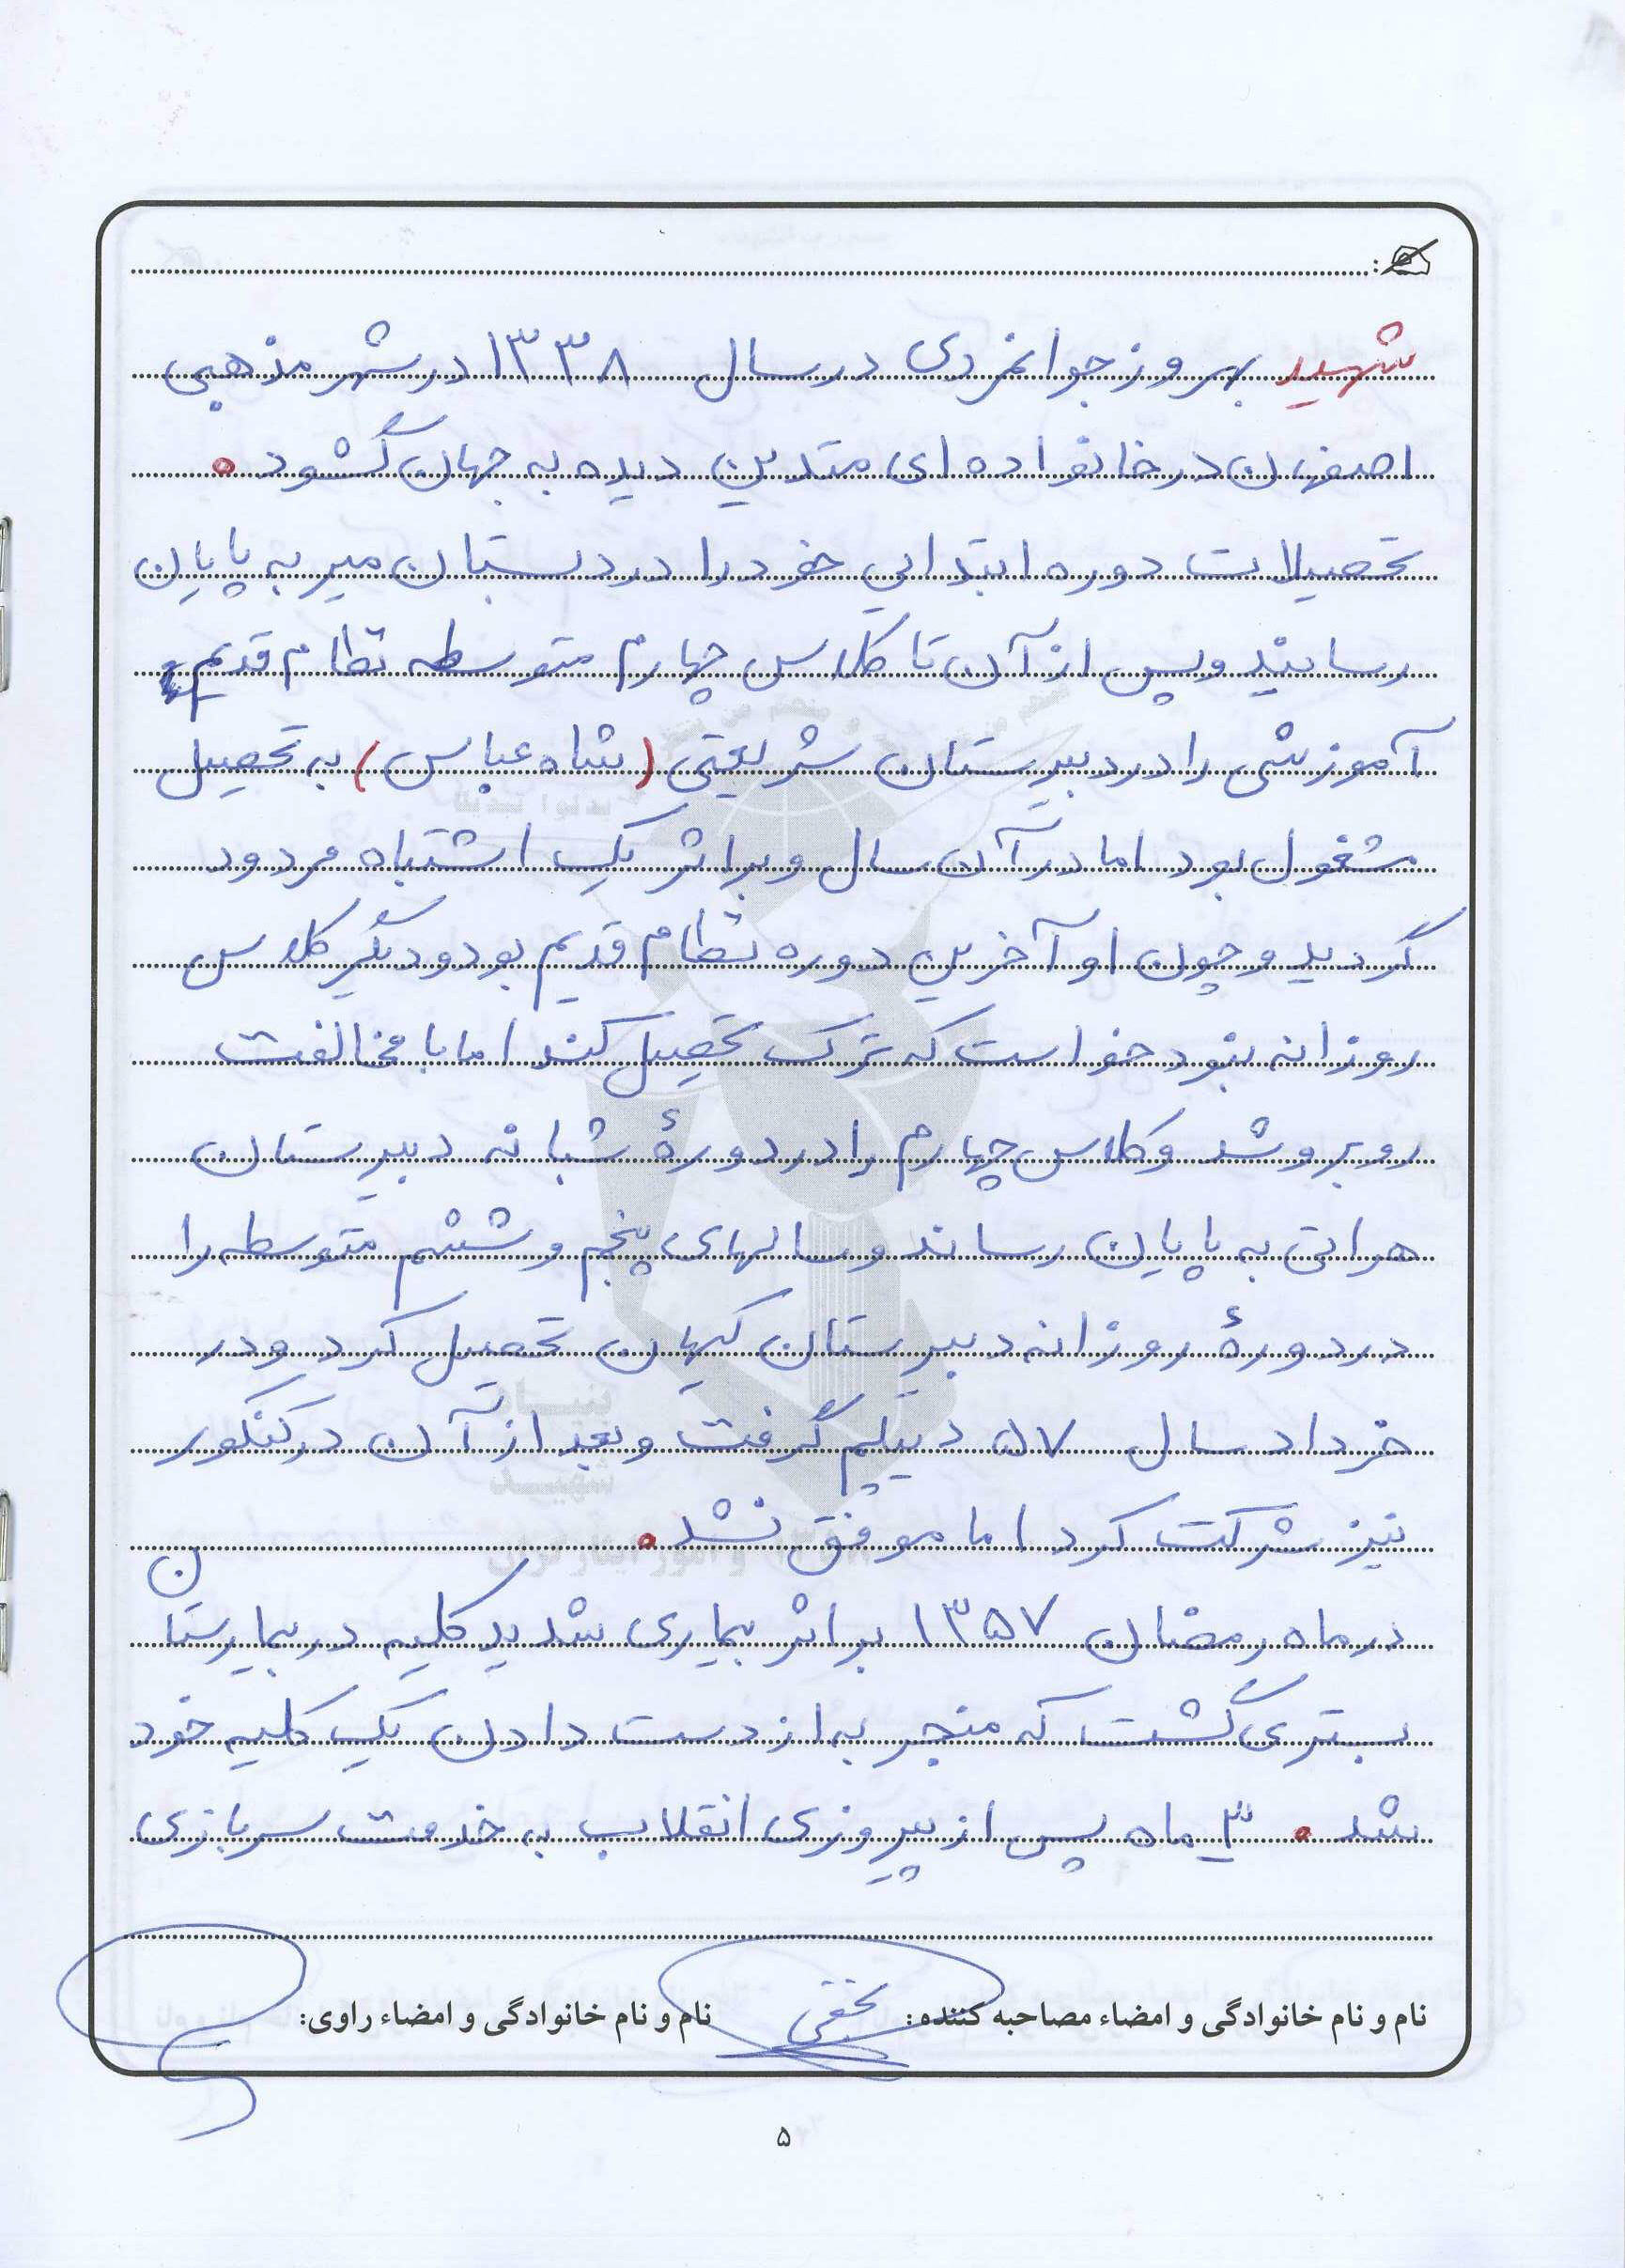 شهید بهروز جوانمردی در سال ۱۳۳۸ در شهر مذهبی
اصفهان در خانواده ای متدین دیده به جهان گشود.
تحصیلات دوره ابتدایی خود را در دبستان میر به پایان
رسانید و پس از آن تا کلاس چهارم متوسطه نظام قدیم
آموزشی را در دبیرستان شریعتی (شاه عباس) به تحصیل
مشغول بود اما در آن سال و بر اثر یک اشتباه مردود
گردید و چون او آخرین دوره نظام قدیم بود و دیگر کلاس
روزانه نبود خواست که ترک تحصیل کند اما با مخالفت
روبرو شد و کلاس چهارم را در دورهٔ شبانه دبیرستان
هراتی به پایان رساند و سالهای پنجم و ششم متوسطه را
در دورهٔ روزانه دبیرستان کیهان تحصیل کرد و در
خرداد سال ۵۷ دیپلم گرفت و بعد از آن در کنکور
نیز شرکت کرد اما موفق نشد.
در ماه رمضان ۱۳۵۷ بر اثر بیماری شدید کلیه در بیمارستان
بستری گشت که منجر به از دست دادن یک کلیه خود
شد. ۳ ماه پس از پیروزی انقلاب به خدمت سربازی
نام و نام خانوادگی و امضاء مصاحبه کننده: نام و نام خانوادگی و امضاء راوی:
۵